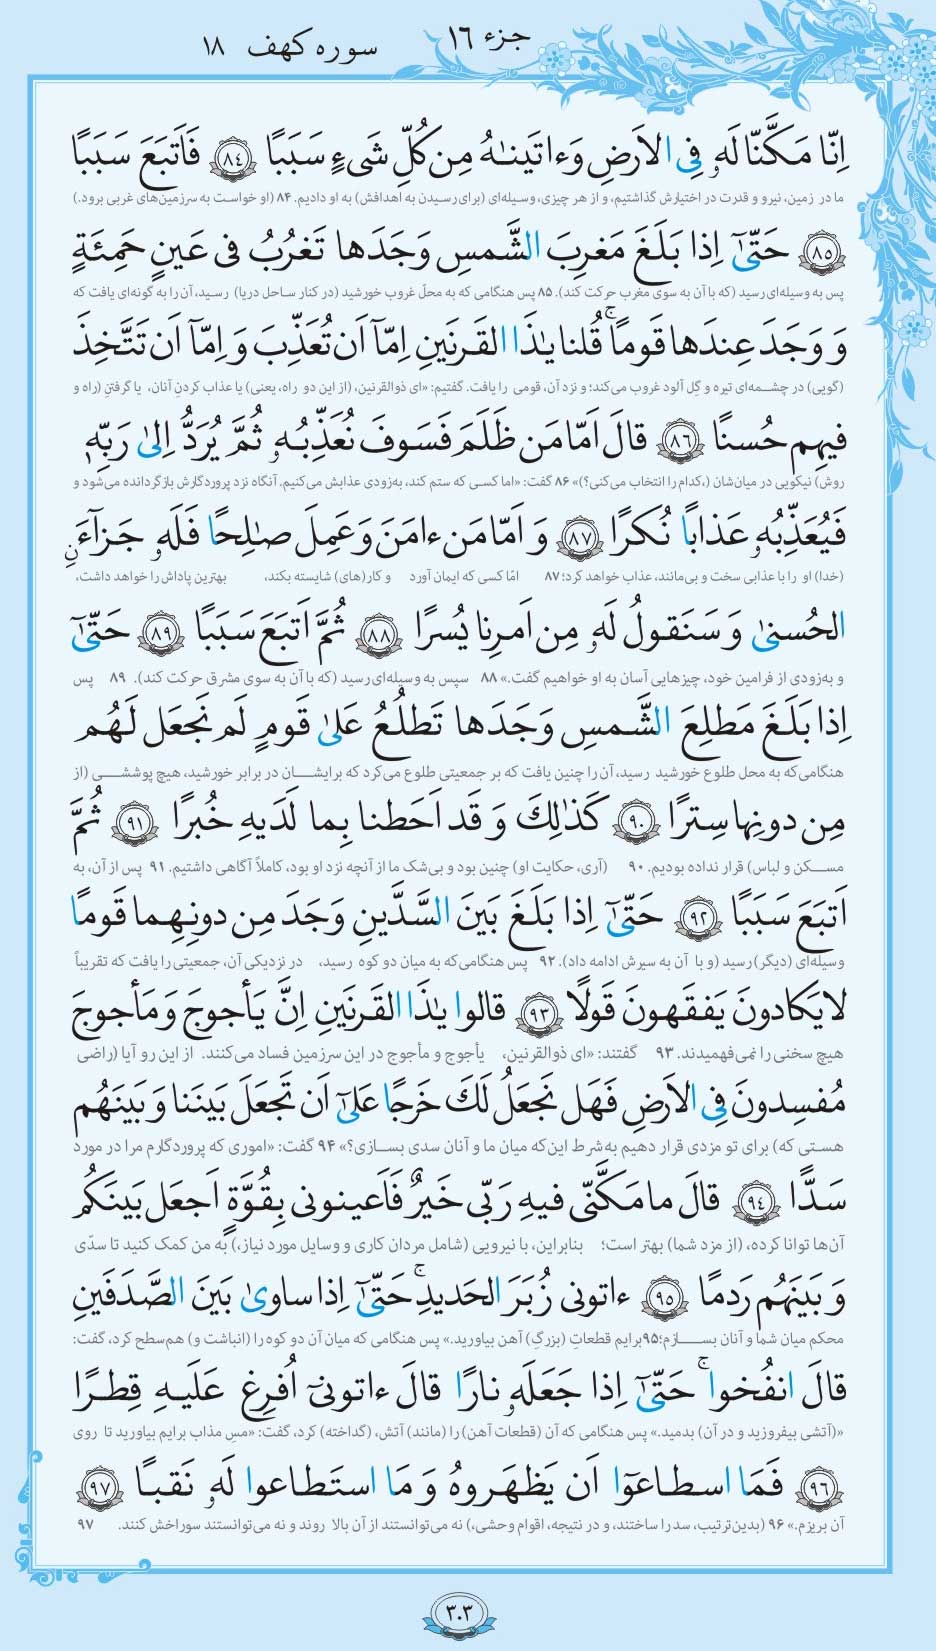 جزء ۱۶
سوره کهف ۱۸
اِنّا مَکَّنّا لَهٗ فِی الاَرضِ وَءاتَینٰهُ مِن کُلِّ شَیءٍ سَبَبًا ﴿۸٤﴾ فَاَتبَعَ سَبَبًا
ما در زمین، نیرو و قدرت در اختیارش گذاشتیم، و از هر چیزی، وسیله‌ای (برای رسیدن به اهدافش) به او دادیم. ۸۴ (او خواست به سرزمین‌های غربی برود.)
﴿۸۵﴾ حَتّیٰٓ اِذا بَلَغَ مَغرِبَ الشَّمسِ وَجَدَها تَغرُبُ فی عَینٍ حَمِئَةٍ
پس به وسیله‌ای رسید (که با آن به سوی مغرب حرکت کند). ۸۵ پس هنگامی که به محلّ غروب خورشید (در کنار ساحل دریا) رسید، آن را به گونه‌ای یافت که
وَ وَجَدَ عِندَها قَومًاۚ قُلنا یٰذَا القَرنَینِ اِمّآ اَن تُعَذِّبَ وَ اِمّآ اَن تَتَّخِذَ
(گویی) در چشمه‌ای تیره و گل آلود غروب می‌کند؛ و نزد آن، قومی را یافت. گفتیم: «ای ذوالقرنین، (از این دو راه، یعنی) یا عذاب کردنِ آنان، یا گرفتنِ (راه و
فیهِم حُسنًا ﴿۸۶﴾ قالَ اَمّا مَن ظَلَمَ فَسَوفَ نُعَذِّبُهٗ ثُمَّ یُرَدُّ اِلیٰ رَبِّهٖ
روش) نیکویی در میان‌شان (،کدام را انتخاب می‌کنی؟)» ۸۶ گفت: «اما کسی که ستم کند، به‌زودی عذابش می‌کنیم. آنگاه نزد پروردگارش بازگردانده می‌شود و
فَیُعَذِّبُهٗ عَذابًا نُکرًا ﴿۸۷﴾ وَ اَمّا مَن ءامَنَ وَ عَمِلَ صالِحًا فَلَهٗ جَزآءً
(خدا) او را با عذابی سخت و بی‌مانند، عذاب خواهد کرد؛ ۸۷ امّا کسی که ایمان آورد و کار(های) شایسته بکند، بهترین پاداش را خواهد داشت،
الحُسنیٰ وَ سَنَقولُ لَهٗ مِن اَمرِنا یُسرًا ﴿۸۸﴾ ثُمَّ اَتبَعَ سَبَبًا ﴿۸۹﴾ حَتّیٰٓ
و به‌زودی از فرامین خود، چیزهایی آسان به او خواهیم گفت.» ۸۸ سپس به وسیله‌ای رسید (که با آن به سوی مشرق حرکت کند). ۸۹ پس
اِذا بَلَغَ مَطلِعَ الشَّمسِ وَجَدَها تَطلُعُ عَلیٰ قَومٍ لَم نَجعَل لَهُم
هنگامی‌که به محل طلوع خورشید رسید، آن را چنین یافت که بر جمعیتی طلوع می‌کرد که برایشان در برابر خورشید، هیچ پوششی (از
مِن دونِها سِترًا ﴿۹۰﴾ کَذٰلِکَ وَ قَد اَحَطنا بِما لَدَیهِ خُبرًا ﴿۹۱﴾ ثُمَّ
مسکن و لباس) قرار نداده بودیم. ۹۰ (آری، حکایت او) چنین بود و بی‌شک ما از آنچه نزد او بود، کاملاً آگاهی داشتیم. ۹۱ پس از آن، به
اَتبَعَ سَبَبًا ﴿۹۲﴾ حَتّیٰٓ اِذا بَلَغَ بَینَ السَّدَّینِ وَجَدَ مِن دونِهِما قَومًا
وسیله‌ای (دیگر) رسید (و با آن به سیرش ادامه داد). ۹۲ پس هنگامی‌که به میان دو کوه رسید، در نزدیکی آن، جمعیتی را یافت که تقریباً
لا یَکادونَ یَفقَهونَ قَولًا ﴿۹۳﴾ قالوا یٰذَا القَرنَینِ اِنَّ یَأجوجَ وَ مَأجوجَ
هیچ سخنی را نمی‌فهمیدند. ۹۳ گفتند: «ای ذوالقرنین، یأجوج و مأجوج در این سرزمین فساد می‌کنند. از این رو آیا (راضی
مُفسِدونَ فِی الاَرضِ فَهَل نَجعَلُ لَکَ خَرجًا عَلیٰٓ اَن تَجعَلَ بَینَنا وَ بَینَهُم
هستی که) برای تو مزدی قرار دهیم به‌شرط این‌که میان ما و آنان سدی بسازی؟» ۹۴ گفت: «اموری که پروردگارم مرا در مورد
سَدًّا ﴿۹٤﴾ قالَ ما مَکَّنّی فیهِ رَبّی خَیرٌ فَاَعینونی بِقُوَّةٍ اَجعَل بَینَکُم
آن‌ها توانا کرده، (از مزد شما) بهتر است؛ بنابراین، با نیرویی (شامل مردان کاری و وسایل مورد نیاز،) به من کمک کنید تا سدّی
وَ بَینَهُم رَدمًا ﴿۹۵﴾ ءاتونی زُبَرَ الحَدیدِۚ حَتّیٰٓ اِذا ساویٰ بَینَ الصَّدَفَینِ
محکم میان شما و آنان بسازم؛۹۵برایم قطعاتِ (بزرگِ) آهن بیاورید.» پس هنگامی که میان آن دو کوه را (انباشت و) هم‌سطح کرد، گفت:
قالَ انفُخواۚ حَتّیٰٓ اِذا جَعَلَهٗ نارًا قالَ ءاتونیٓ اُفرِغ عَلَیهِ قِطرًا
«(آتشی بیفروزید و در آن) بدمید.» پس هنگامی که آن (قطعات آهن) را (مانند) آتش، (گداخته) کرد، گفت: «مسِ مذاب برایم بیاورید تا روی
﴿۹۶﴾ فَمَا اسطاعوٓا اَن یَظهَروهُ وَ مَا استَطاعوا لَهٗ نَقبًا ﴿۹۷﴾
آن بریزم.» ۹۶ (بدین‌ترتیب، سد را ساختند، و در نتیجه، اقوام وحشی،) نه می‌توانستند از آن بالا روند و نه می‌توانستند سوراخش کنند. ۹۷
۳۰۳